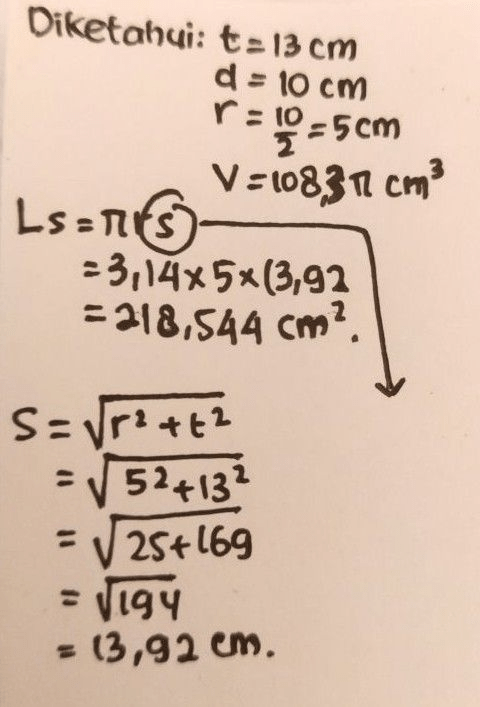 Diketahui: t = 13 cm
d = 10 cm
r = 10/2 = 5 cm
V = 108,3 π cm³
Ls = π r s
= 3,14 × 5 × 13,92
= 218,544 cm².
S = √r² + t²
= √5² + 13²
= √25 + 169
= √194
= 13,92 cm.